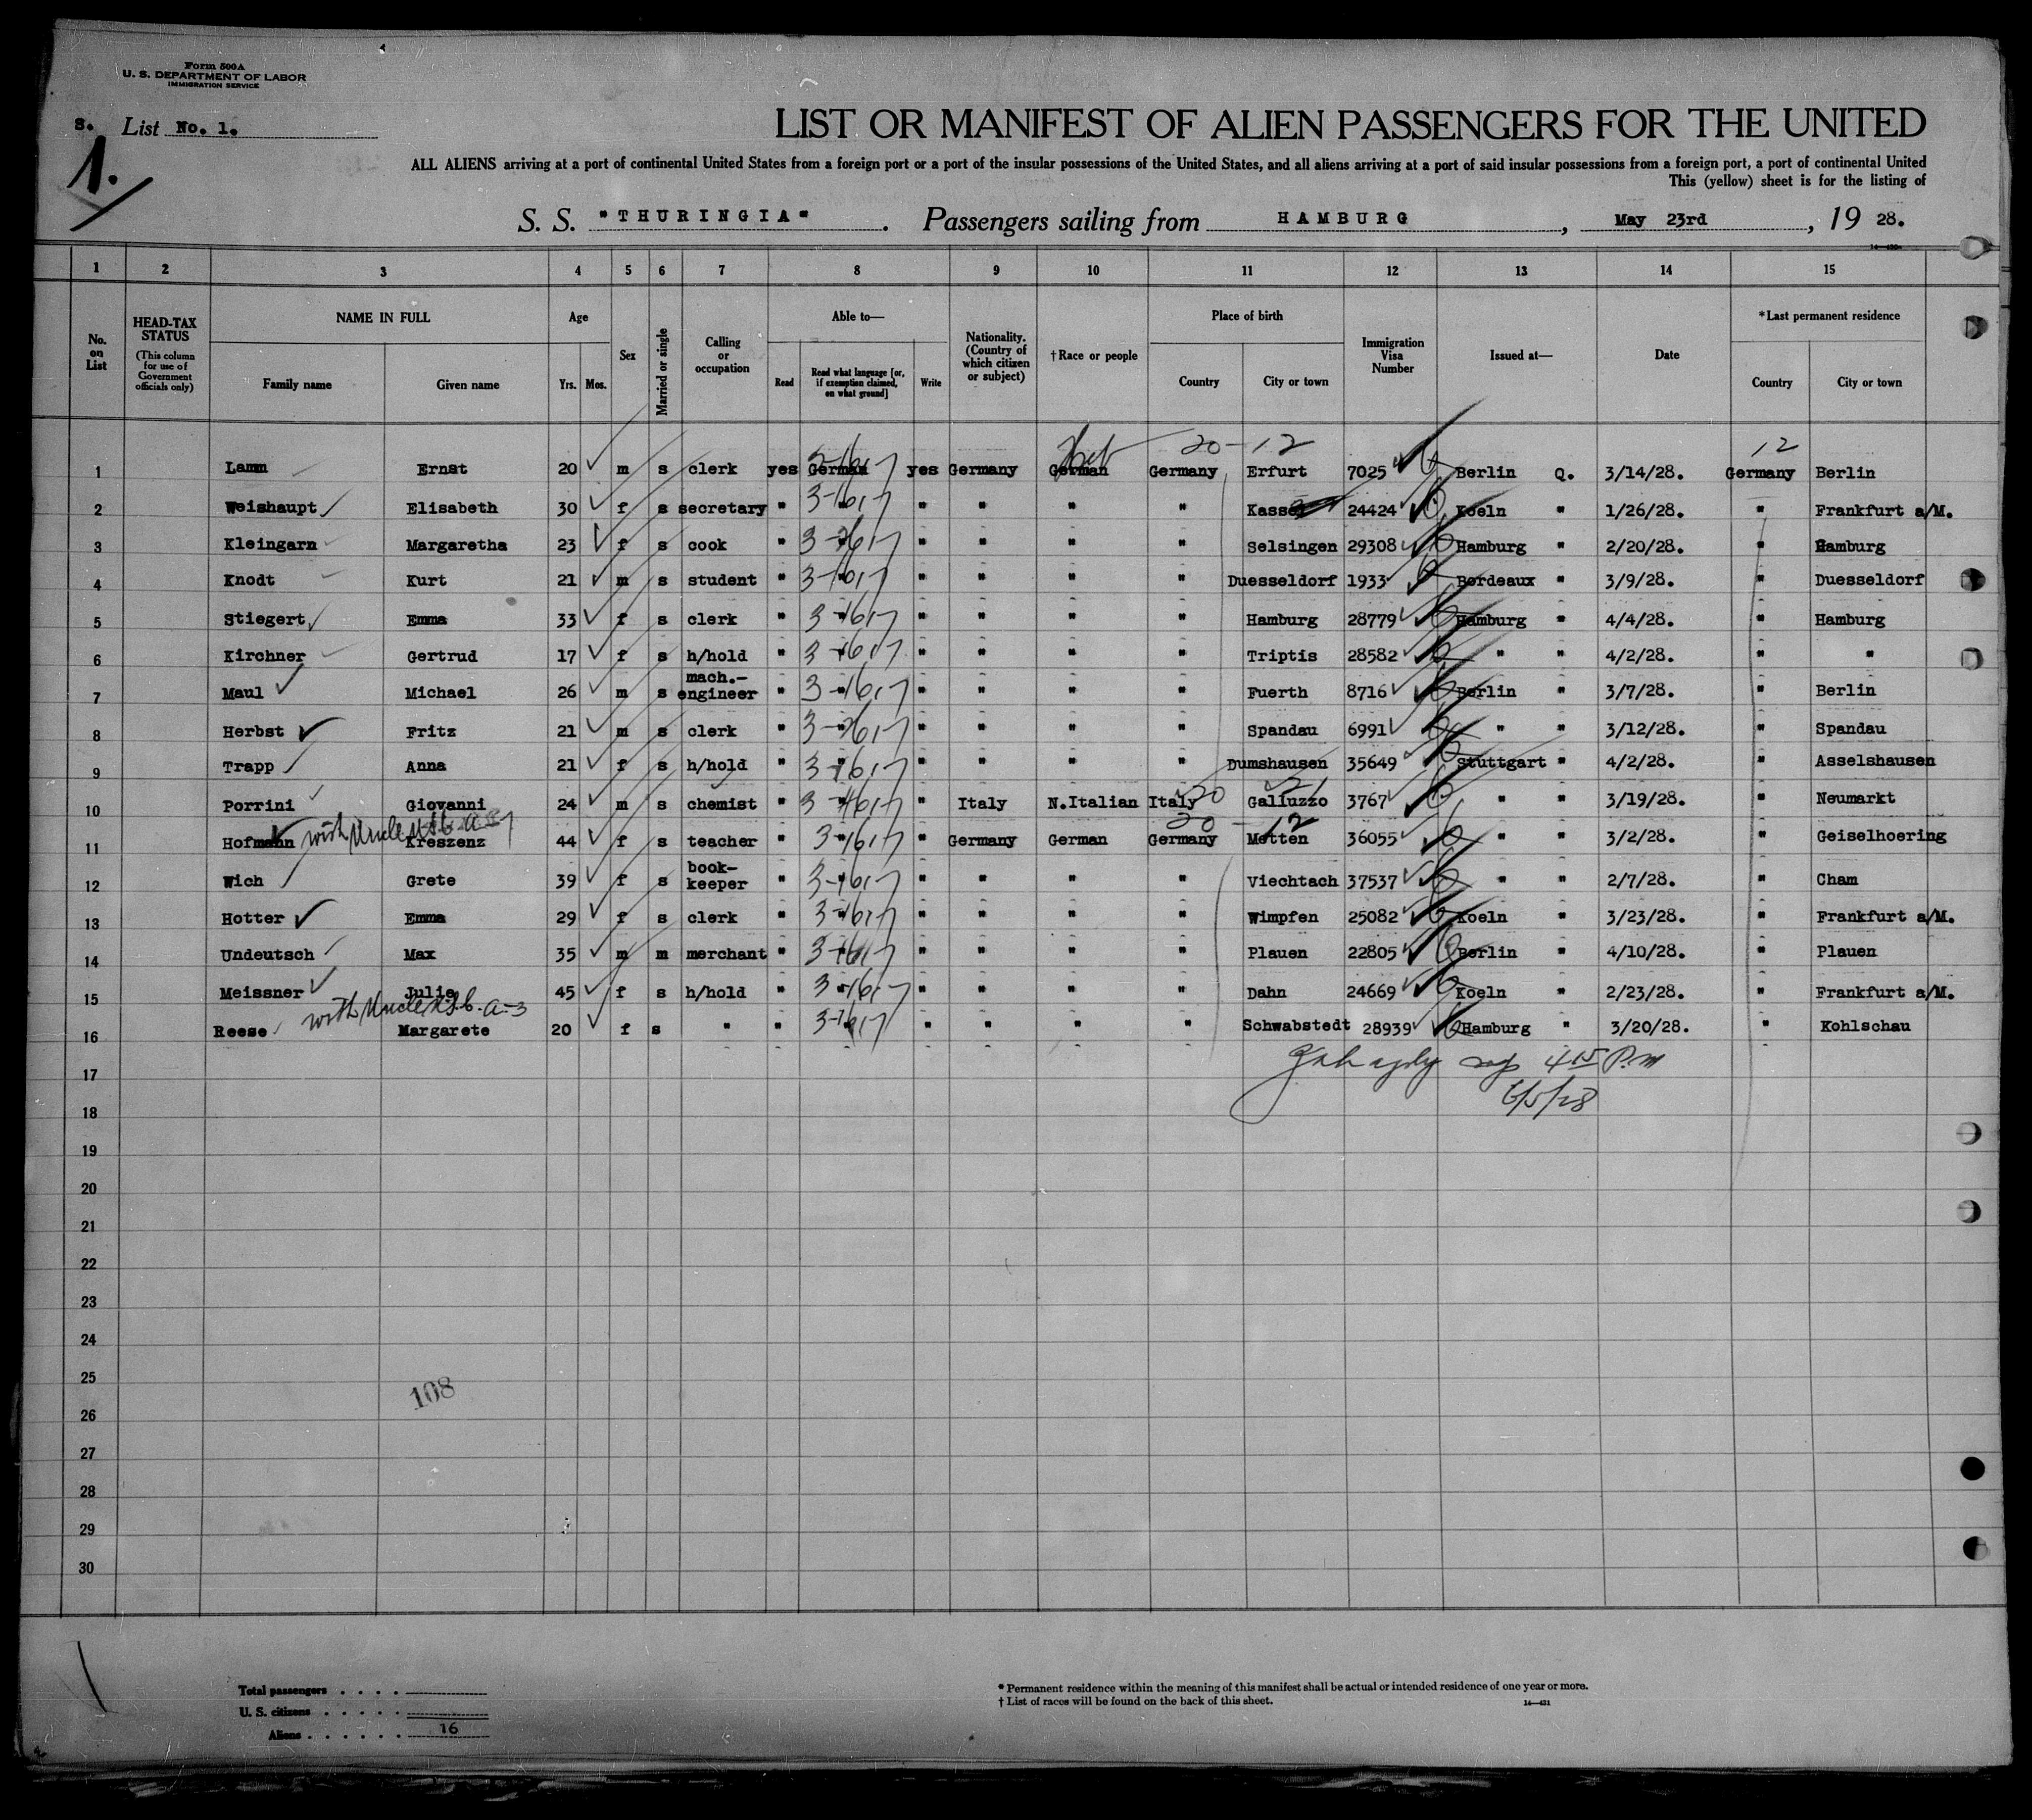 Form 500A
U. S. DEPARTMENT OF LABOR
IMMIGRATION SERVICE
S. List No. 1.
1.
LIST OR MANIFEST OF ALIEN PASSENGERS FOR THE UNITED
ALL ALIENS arriving at a port of continental United States from a foreign port or a port of the insular possessions of the United States, and all aliens arriving at a port of said insular possessions from a foreign port, a port of continental United
This (yellow) sheet is for the listing of
S. S. "THURINGIA". Passengers sailing from HAMBURG, May 23rd, 19 28.
1 2 3 4 5 6 7 8 9 10 11 12 13 14 15
No. on List HEAD-TAX STATUS (This column for use of Government officials only) NAME IN FULL Family name Given name Age Yrs. Mos. Sex Married or single Calling or occupation Able to— Read Read what language [or, if exemption claimed, on what ground] Write Nationality. (Country of which citizen or subject) †Race or people Place of birth Country City or town Immigration Visa Number Issued at— Date *Last permanent residence Country City or town
20-12 12
1 Lamm Ernst 20 m s clerk yes German yes Germany German Germany Erfurt 7025 Berlin Q. 3/14/28. Germany Berlin
2 Weishaupt Elisabeth 30 f s secretary " " " " " " Kassel 24424 Koeln " 1/26/28. " Frankfurt a/M.
3 Kleingarn Margaretha 23 f s cook " " " " " " Selsingen 29308 Hamburg " 2/20/28. " Hamburg
4 Knodt Kurt 21 m s student " " " " " " Duesseldorf 1933 Bordeaux " 3/9/28. " Duesseldorf
5 Stiegert Emma 33 f s clerk " " " " " " Hamburg 28779 Hamburg " 4/4/28. " Hamburg
6 Kirchner Gertrud 17 f s h/hold " " " " " " Triptis 28582 " " 4/2/28. " "
7 Maul Michael 26 m s mach.-engineer " " " " " " Fuerth 8716 Berlin " 3/7/28. " Berlin
8 Herbst Fritz 21 m s clerk " " " " " " Spandau 6991 " " 3/12/28. " Spandau
9 Trapp Anna 21 f s h/hold " " " " " " Dumshausen 35649 Stuttgart " 4/2/28. " Asselshausen
10 Porrini Giovanni 24 m s chemist " " " Italy N.Italian Italy Galluzzo 3767 " " 3/19/28. " Neumarkt
with Uncle
20 - 12
11 Hofmann Kreszenz 44 f s teacher " " " Germany German Germany Metten 36055 " " 3/2/28. " Geiselhoering
12 Wich Grete 39 f s book-keeper " " " " " " Viechtach 37537 " " 2/7/28. " Cham
13 Hotter Emma 29 f s clerk " " " " " " Wimpfen 25082 Koeln " 3/23/28. " Frankfurt a/M.
14 Undeutsch Max 35 m m merchant " " " " " " Plauen 22805 Berlin " 4/10/28. " Plauen
15 Meissner Julie 45 f s h/hold " " " " " " Dahn 24669 Koeln " 2/23/28. " Frankfurt a/M.
with Uncle
16 Reese Margarete 20 f s " " " " " " " Schwabstedt 28939 Hamburg " 3/20/28. " Kohlschau
17 4 15 P.M
18 6/5/28
19
20
21
22
23
24
25
108
26
27
28
29
30
Total passengers
U. S. citizens
Aliens 16
* Permanent residence within the meaning of this manifest shall be actual or intended residence of one year or more.
† List of races will be found on the back of this sheet.
14—431